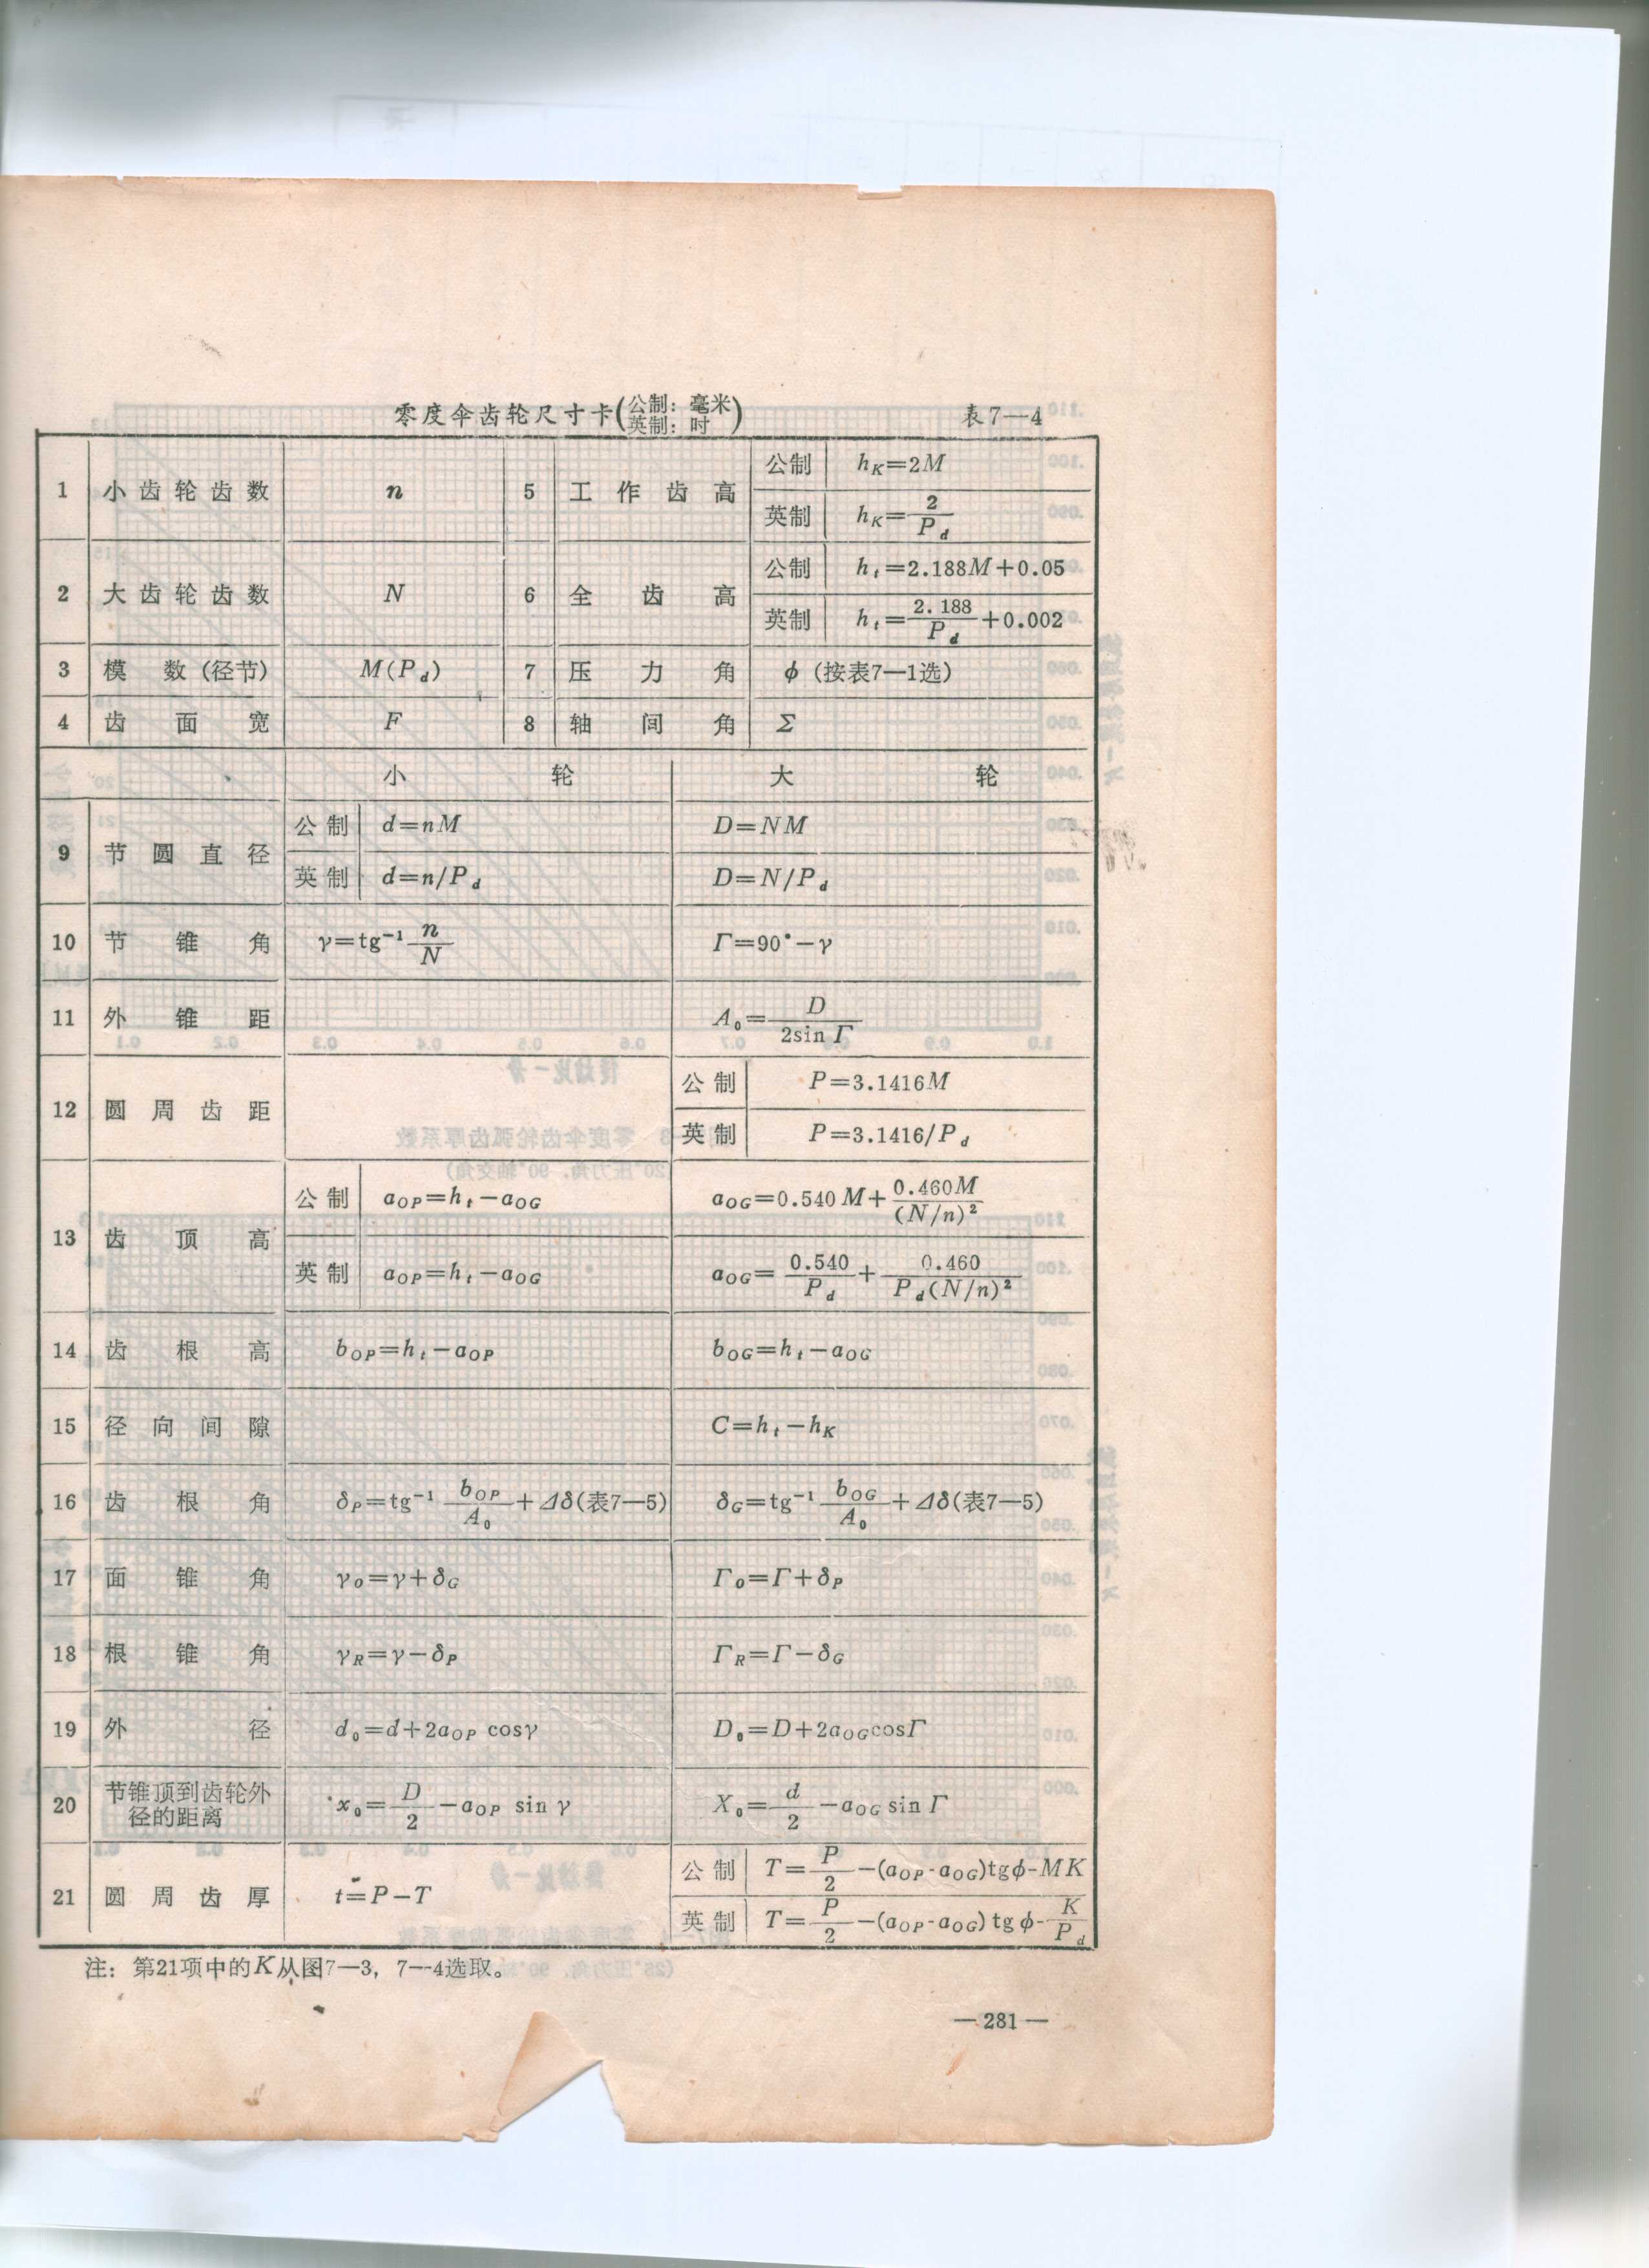 零度伞齿轮尺寸卡(公制：毫米 英制：吋) 表7—4
1 小齿轮齿数 n 5 工作齿高 公制 hK=2M
英制 hK=2/Pd
2 大齿轮齿数 N 6 全齿高 公制 ht=2.188M+0.05
英制 ht=2.188/Pd+0.002
3 模数(径节) M(Pd) 7 压力角 ϕ (按表7—1选)
4 齿面宽 F 8 轴间角 Σ
小轮 大轮
9 节圆直径 公制 d=nM D=NM
英制 d=n/Pd D=N/Pd
10 节锥角 γ=tg⁻¹ n/N Γ=90°−γ
11 外锥距 A₀=D/2sinΓ
12 圆周齿距 公制 P=3.1416M
英制 P=3.1416/Pd
13 齿顶高 公制 aOP=ht−aOG aOG=0.540M+0.460M/(N/n)²
英制 aOP=ht−aOG aOG=0.540/Pd+0.460/Pd(N/n)²
14 齿根高 bOP=ht−aOP bOG=ht−aOG
15 径向间隙 C=ht−hK
16 齿根角 δP=tg⁻¹ bOP/A₀+Δδ(表7—5) δG=tg⁻¹ bOG/A₀+Δδ(表7—5)
17 面锥角 γO=γ+δG ΓO=Γ+δP
18 根锥角 γR=γ−δP ΓR=Γ−δG
19 外径 d₀=d+2aOP cosγ D₀=D+2aOGcosΓ
20 节锥顶到齿轮外径的距离 x₀=D/2−aOP sin γ X₀=d/2−aOG sin Γ
21 圆周齿厚 t=P−T 公制 T=P/2−(aOP-aOG)tgϕ-MK
英制 T=P/2−(aOP-aOG)tgϕ-K/Pd
注：第21项中的K从图7—3，7—4选取。
—281—